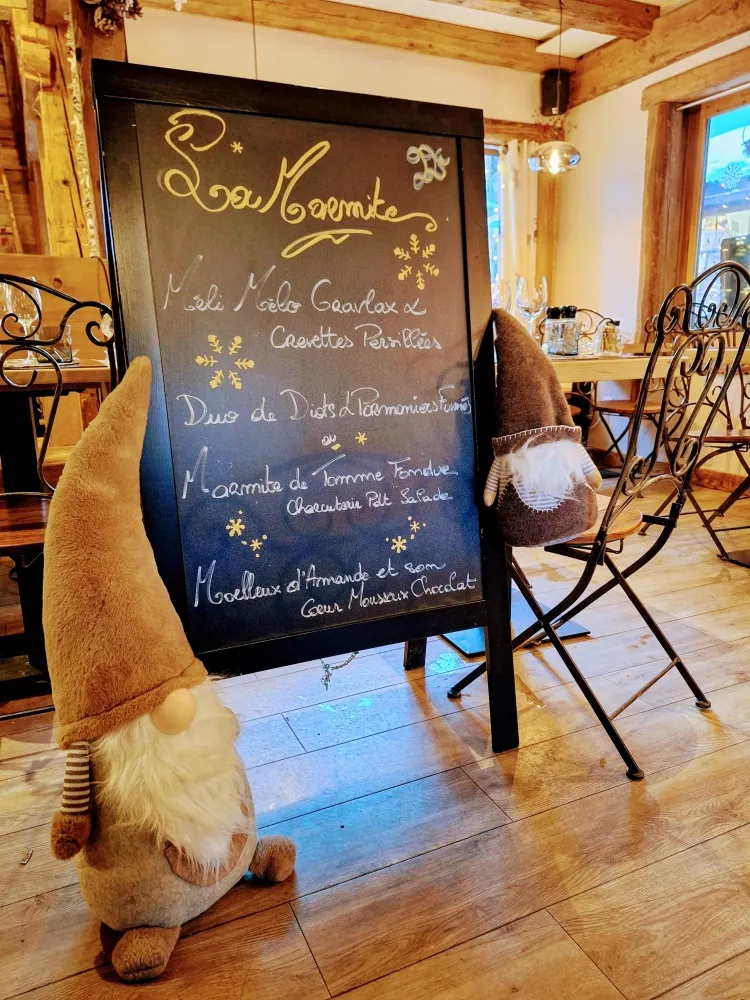 La Marmite
Méli Mélo Gravlax &
Crevettes Persillées
Duo de Diots & Parmoniers Fumés
ou
Marmite de Tomme Fondue
Charcuterie Pdt Salade
Moelleux d'Amande et son
Cœur Mousseux Chocolat